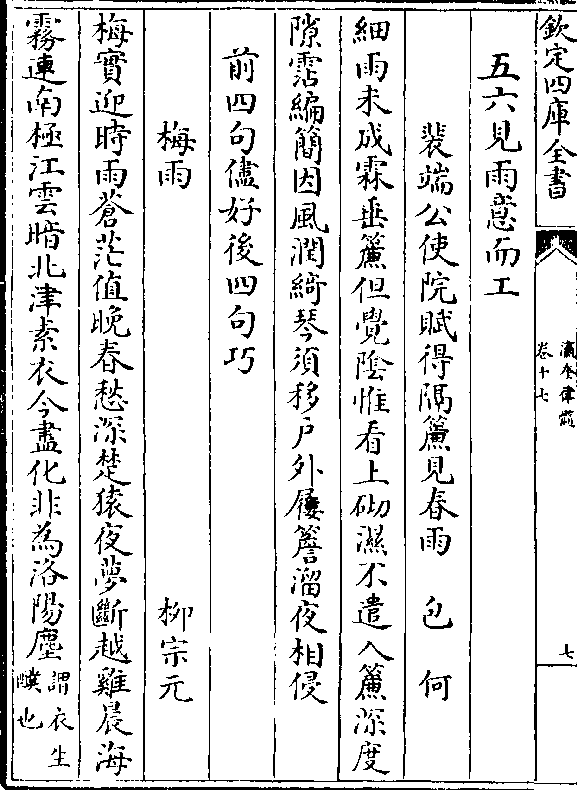 欽定四庫全書
瀛奎律髓
卷十七
七
五六見雨意而工
裴端公使院賦得隔簾見春雨　包何
細雨未成霖垂簾但覺陰惟看上砌濕不遣入簾深度
隙霑編簡因風潤綺琴須移戶外屨簷溜夜相侵
前四句儘好後四句巧
梅雨　柳宗元
梅實迎時雨蒼茫值晚春愁深楚猿夜夢斷越雞晨海
霧連南極江雲暗北津素衣今盡化非為洛陽塵謂衣生
醭也